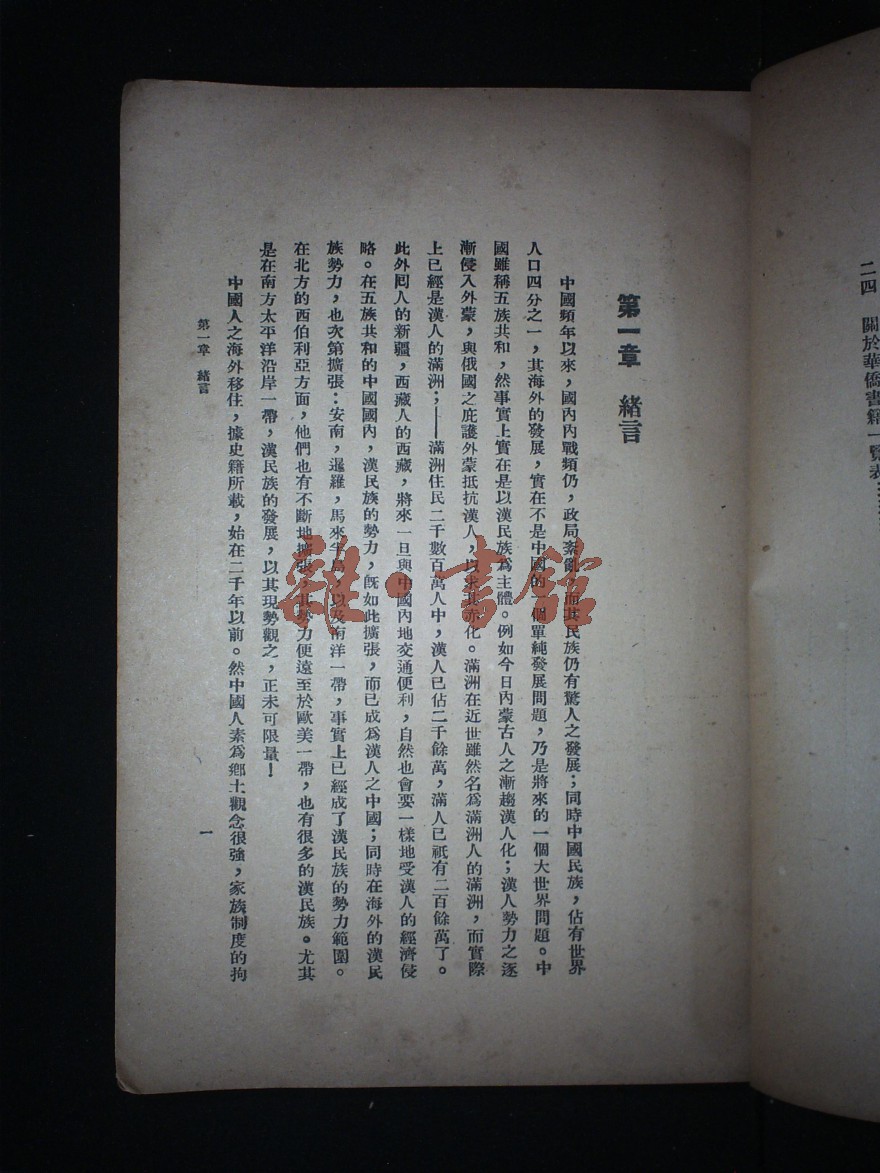 二四　關於華僑書籍一覽表……
第一章　緒言
中國頻年以來，國內內戰頻仍，政局紊亂，而其民族仍有驚人之發展；同時中國民族，佔有世界
人口四分之一，其海外的發展，實在不是中國的一個單純發展問題，乃是將來的一個大世界問題。中
國雖稱五族共和，然事實上實在是以漢民族為主體。例如今日內蒙古人之漸趨漢人化；漢人勢力之逐
漸侵入外蒙，與俄國之庇護外蒙抵抗漢人，以求其赤化。滿洲在近世雖然名為滿洲人的滿洲，而實際
上已經是漢人的滿洲；——滿洲住民二千數百萬人中，漢人已佔二千餘萬，滿人已祇有二百餘萬了。
此外囘人的新疆，西藏人的西藏，將來一旦與中國內地交通便利，自然也會要一樣地受漢人的經濟侵
略。在五族共和的中國國內，漢民族的勢力，旣如此擴張，而已成為漢人之中國；同時在海外的漢民
族勢力，也次第擴張：安南，暹羅，馬來半島，以及南洋一帶，事實上已經成了漢民族的勢力範圍。
在北方的西伯利亞方面，他們也有不斷地擴張，其勢力便遠至於歐美一帶，也有很多的漢民族。尤其
是在南方太平洋沿岸一帶，漢民族的發展，以其現勢觀之，正未可限量！
中國人之海外移住，據史籍所載，始在二千年以前。然中國人素為鄉土觀念很強，家族制度的拘
第一章　緒言
一
雜·書館